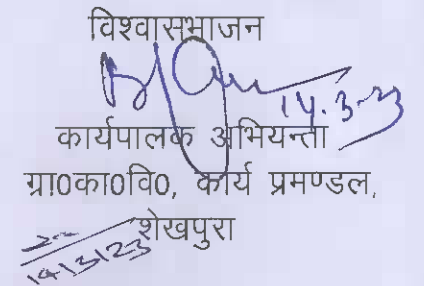 विश्वासभाजन
14.3.23
कार्यपालक अभियन्ता
ग्रा0का0वि0, कार्य प्रमण्डल,
शेखपुरा
14/3/23